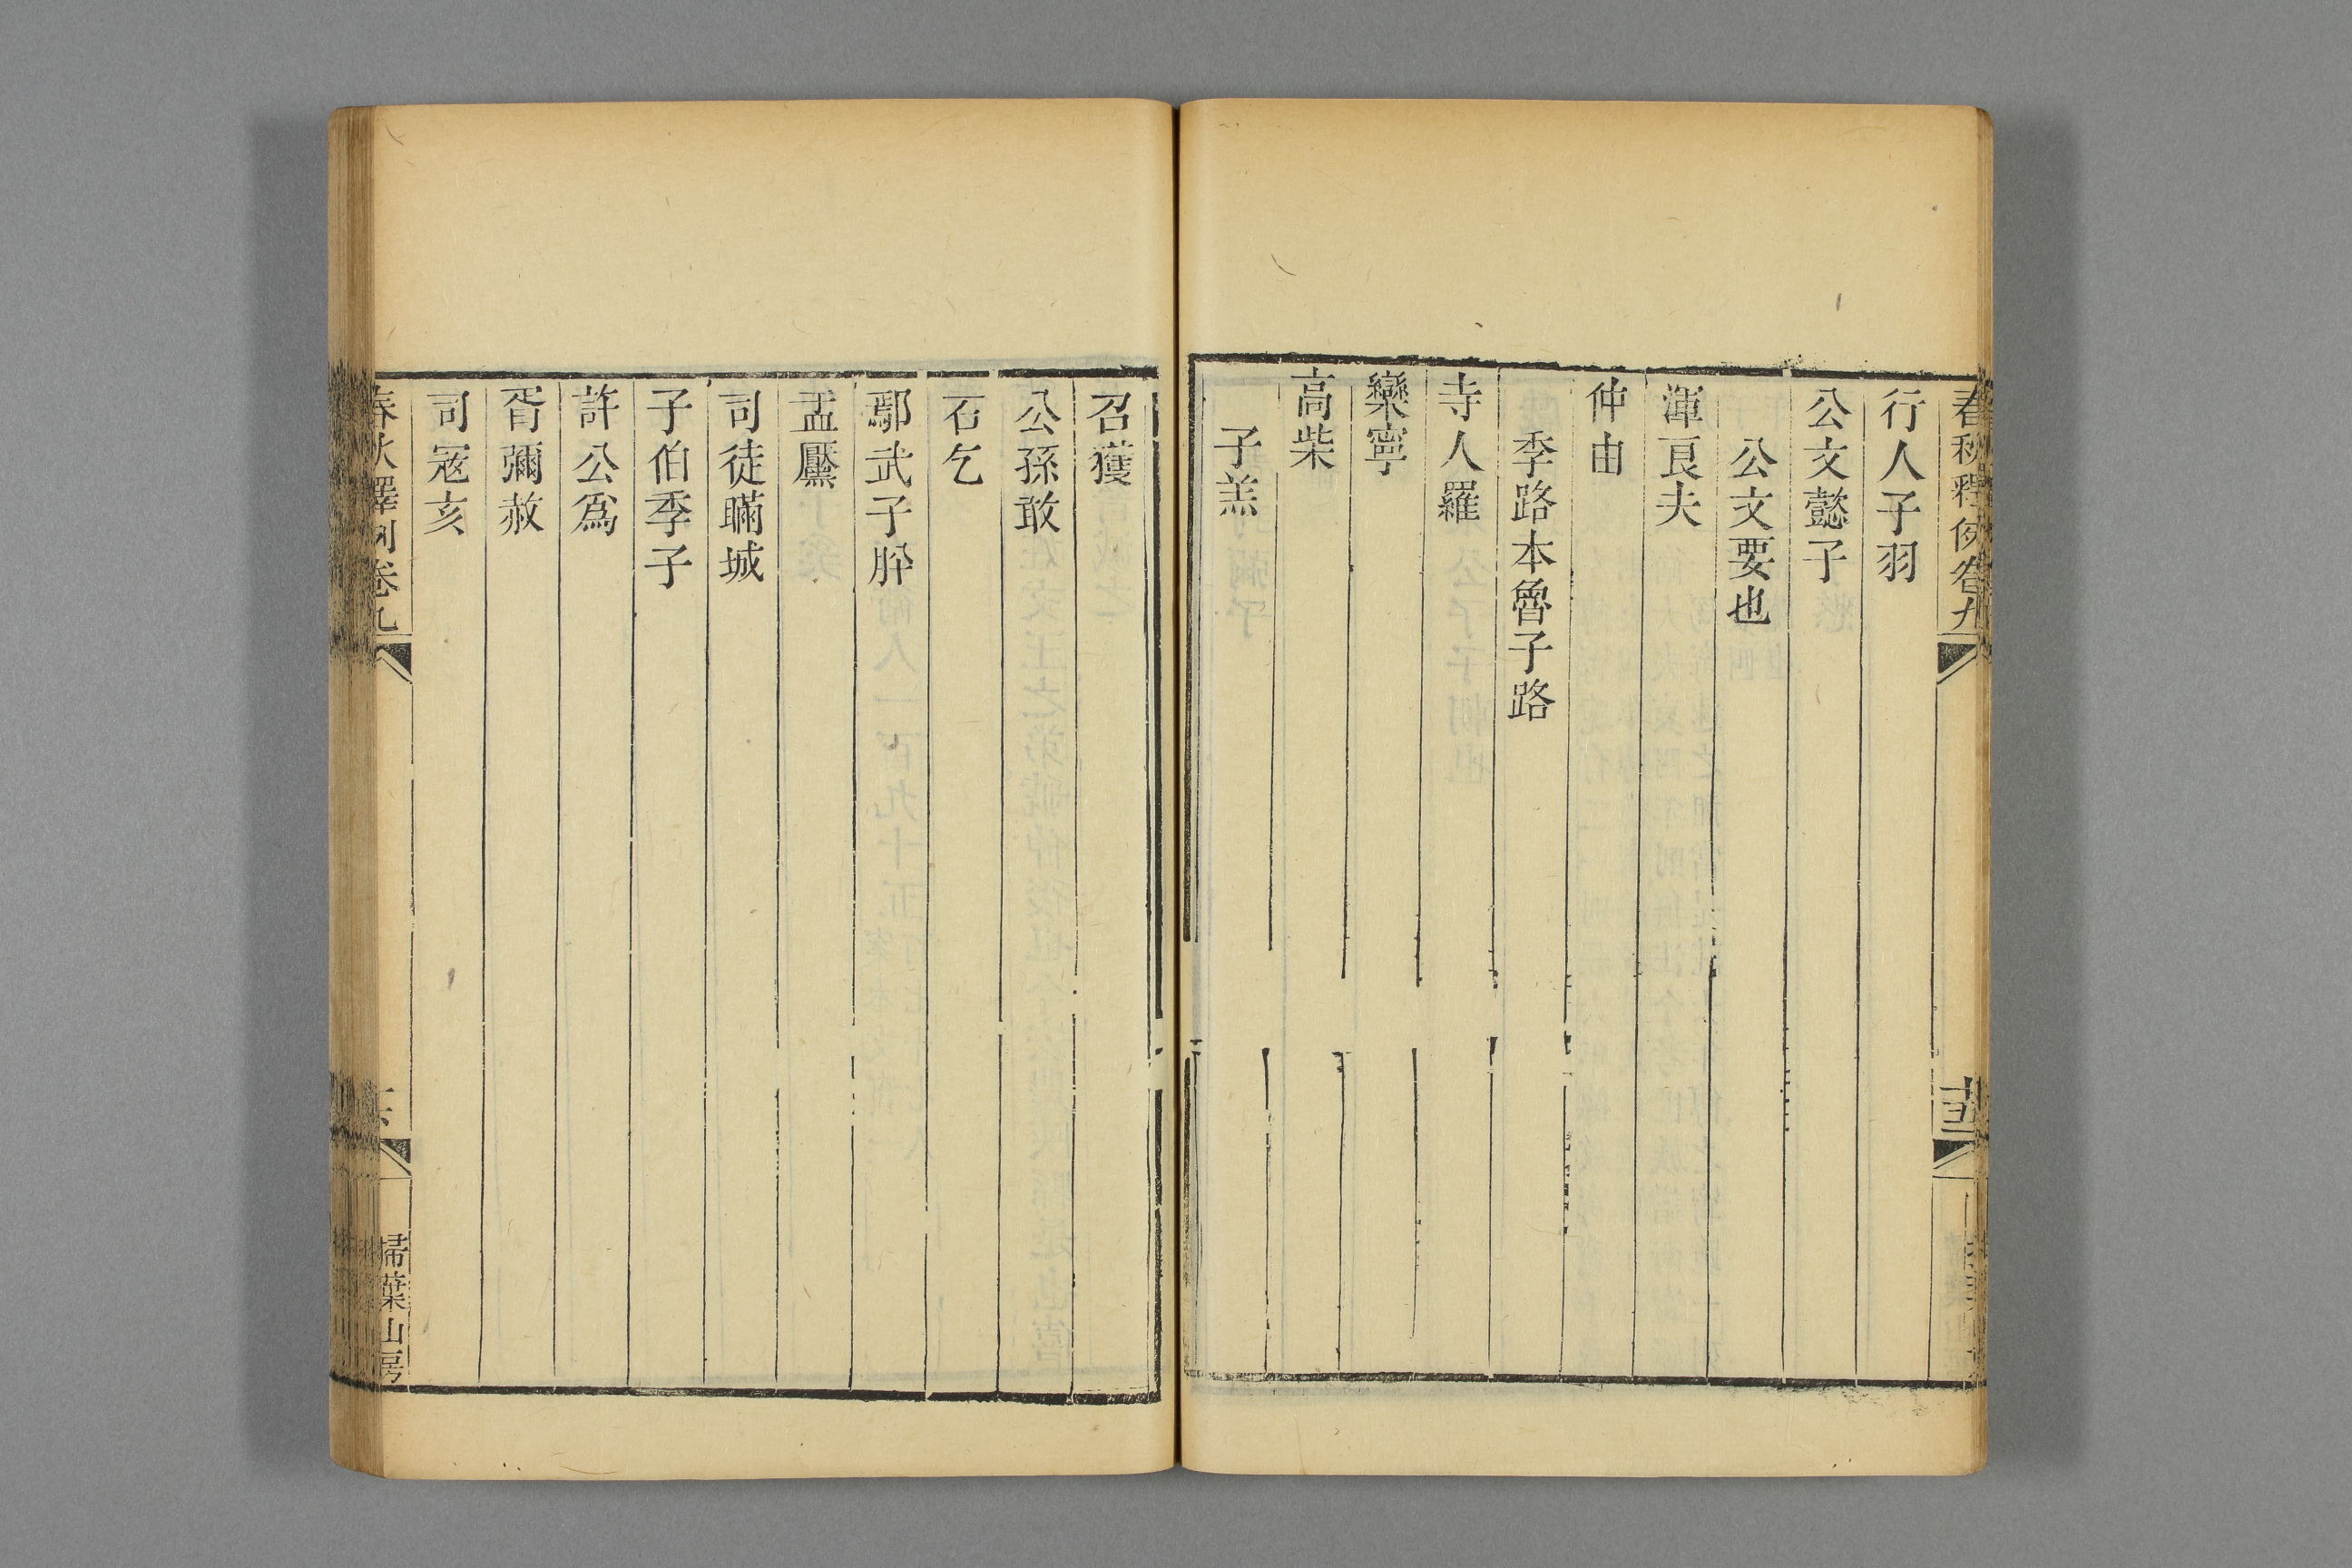 春秋釋例卷九
行人子羽
公文懿子
公文要也
渾良夫
仲由
季路本魯子路
寺人羅
欒寧
高柴
子羔
召獲
公孫敢
石乞
鄢武子肸
盂黶
司徒瞞城
子伯季子
許公爲
胥彌赦
司寇亥
春秋釋例卷九
掃葉山房